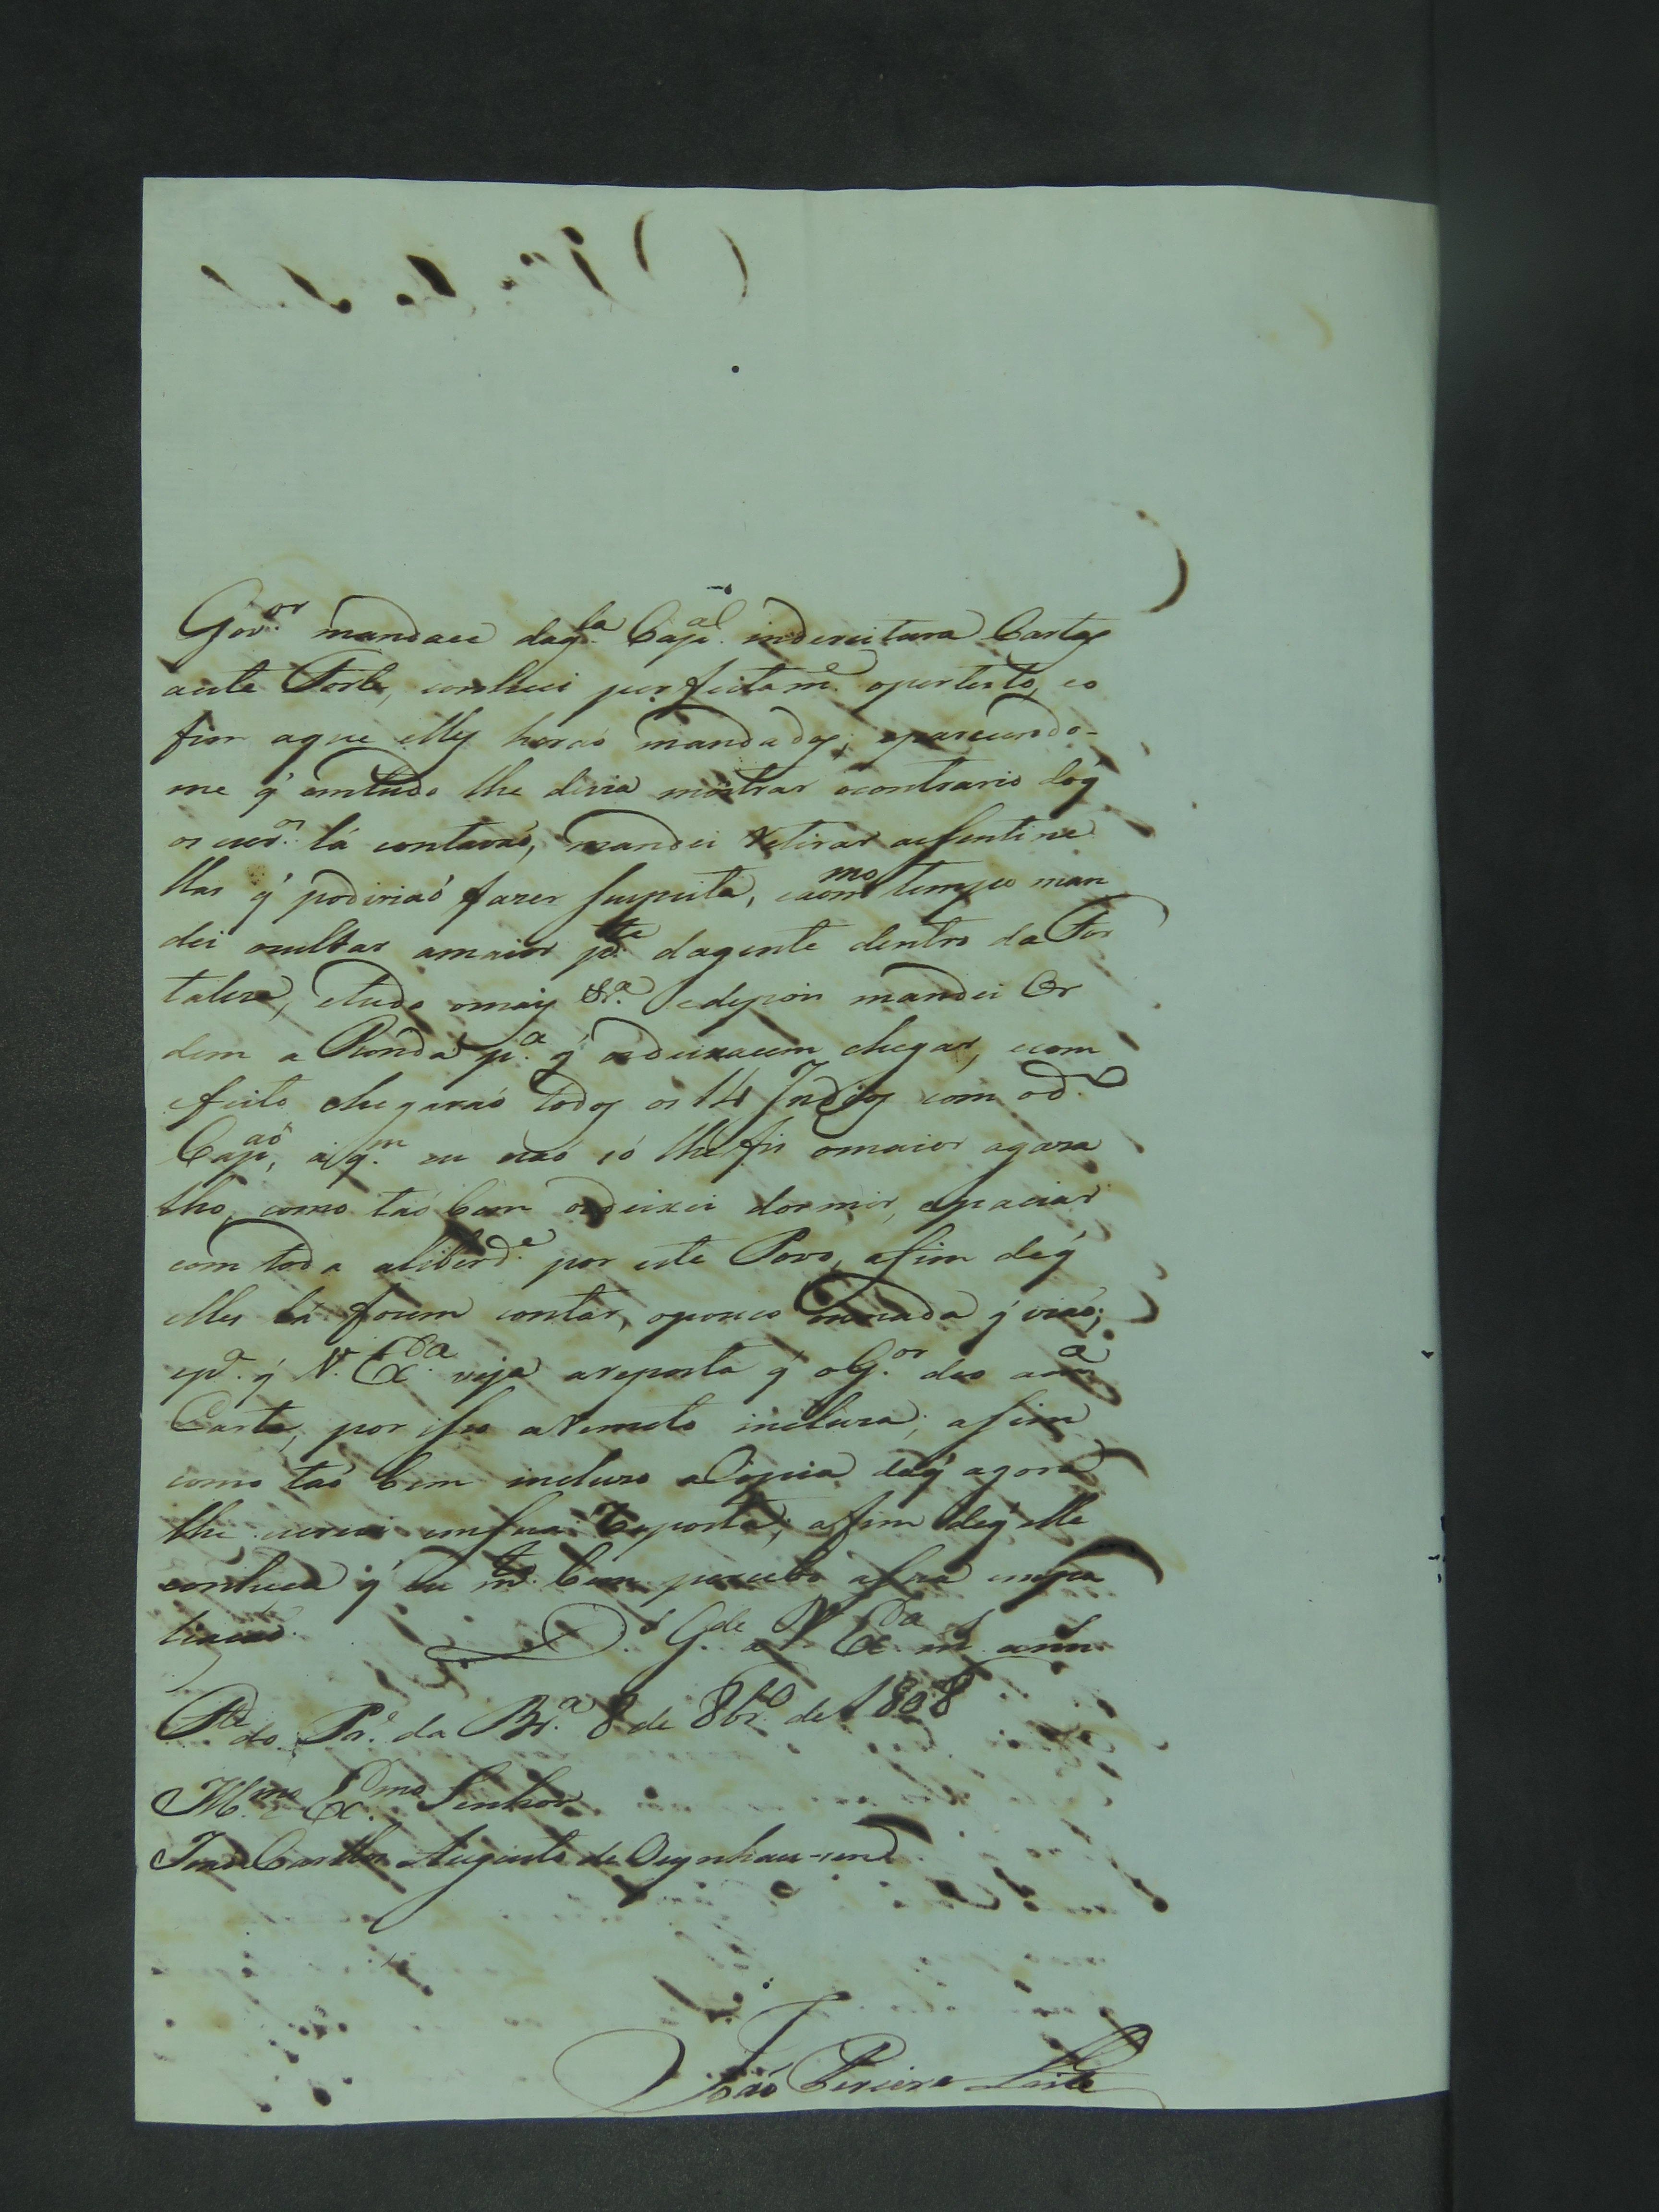 Gov.or mandace daq.la Cap.al indereitura Cartas
aeste Forte, conheci perfeitam.e opertesto, eo
fim aque elles heraó mandados; eparecendo-
me q̃ emtudo lhe divia mostrar ocontrario doq̃
os lá contavaó, mandei retirar assentine
llas q̃ podiriaó fazer suspeita, eaom.mo tempo man
dei ocultar amaior p.te dagente dentro da For
taleza, etudo omais &r.a edepois mandei Or
dem a Ronda p.a q̃ osdeixacem chegar, ecom
efeito chegaraó todos os 14 Indios com od.o
Cap.aó, aq.m eu naó só lhe fis omaior agaza
lho, como taóbem osdeixei dormir, epaciar
com toda aliberd.e por este Povo, afim deq̃
elles lá focem contar, opouco ounada q̃ viraó;
ep.a q̃ V. Ex.cia veja areposta q̃ oG.or deo a
Carta, por isso aremeto incluza; asim
como taó bem incluzo aCopia daq̃ agora
lhe escrevi emsua Reposta; afim deq̃ elle
conheca q̃ eu m.to bem percebo asua

D.s G.de a V. Ex.cia m.s ann.s
F.te do Pr.e da Br.a 8 de 8br.o de 1808
Ill.mo Ex.mo Senhor
Joaó Carllos Augusto de Oeynhau-send
Joaó Pereira Leite